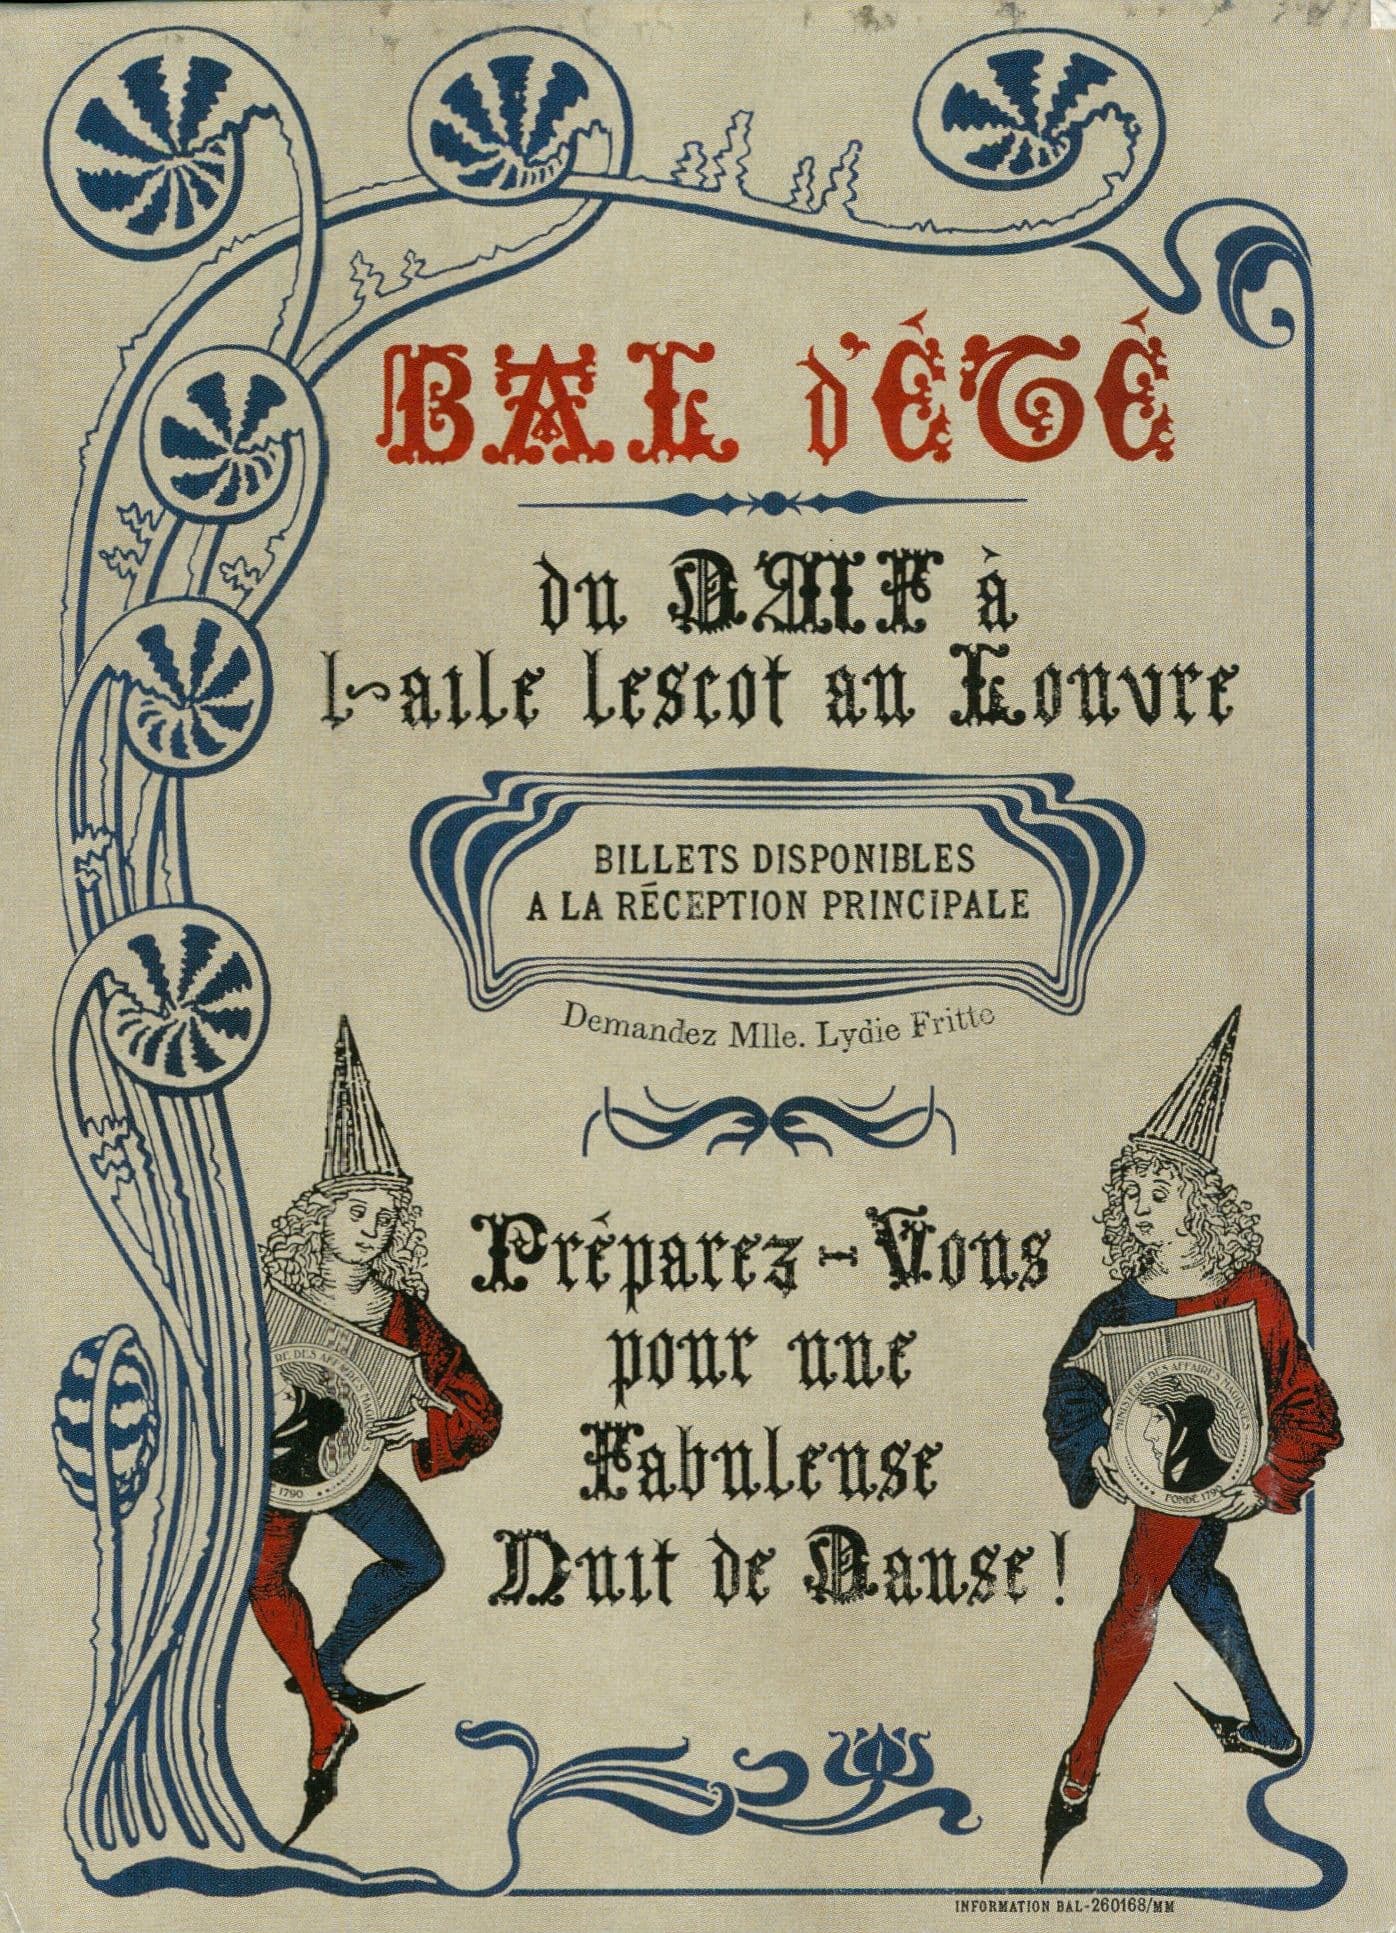 BAL d'ÉTÉ
du DAMF à
l'aile lescot au Louvre
BILLETS DISPONIBLES
A LA RÉCEPTION PRINCIPALE
Demandez Mlle. Lydie Fritte
Préparez-Vous
pour une
Fabuleuse
Nuit de Danse!
RE DES AFFAIRES MAGIQUES
1790
MINISTÈRE DES AFFAIRES MAGIQUES
FONDÉ 1790
INFORMATION BAL-260168/MM